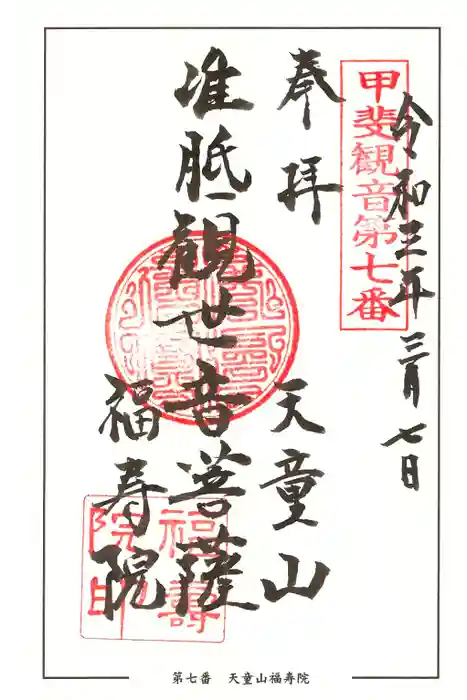 甲斐観音第七番
令和三年三月七日
奉拝
天童山
准胝観世音菩薩
福寿院
福壽院印
第七番　天童山福寿院